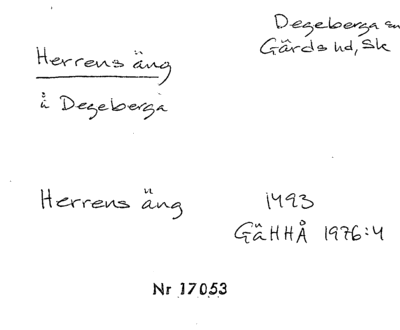 Degeberga sn
Gärds hd, Sk
Herrens äng
å Degeberga
Herrens äng 1493
GäHHÅ 1976:4
Nr 17053